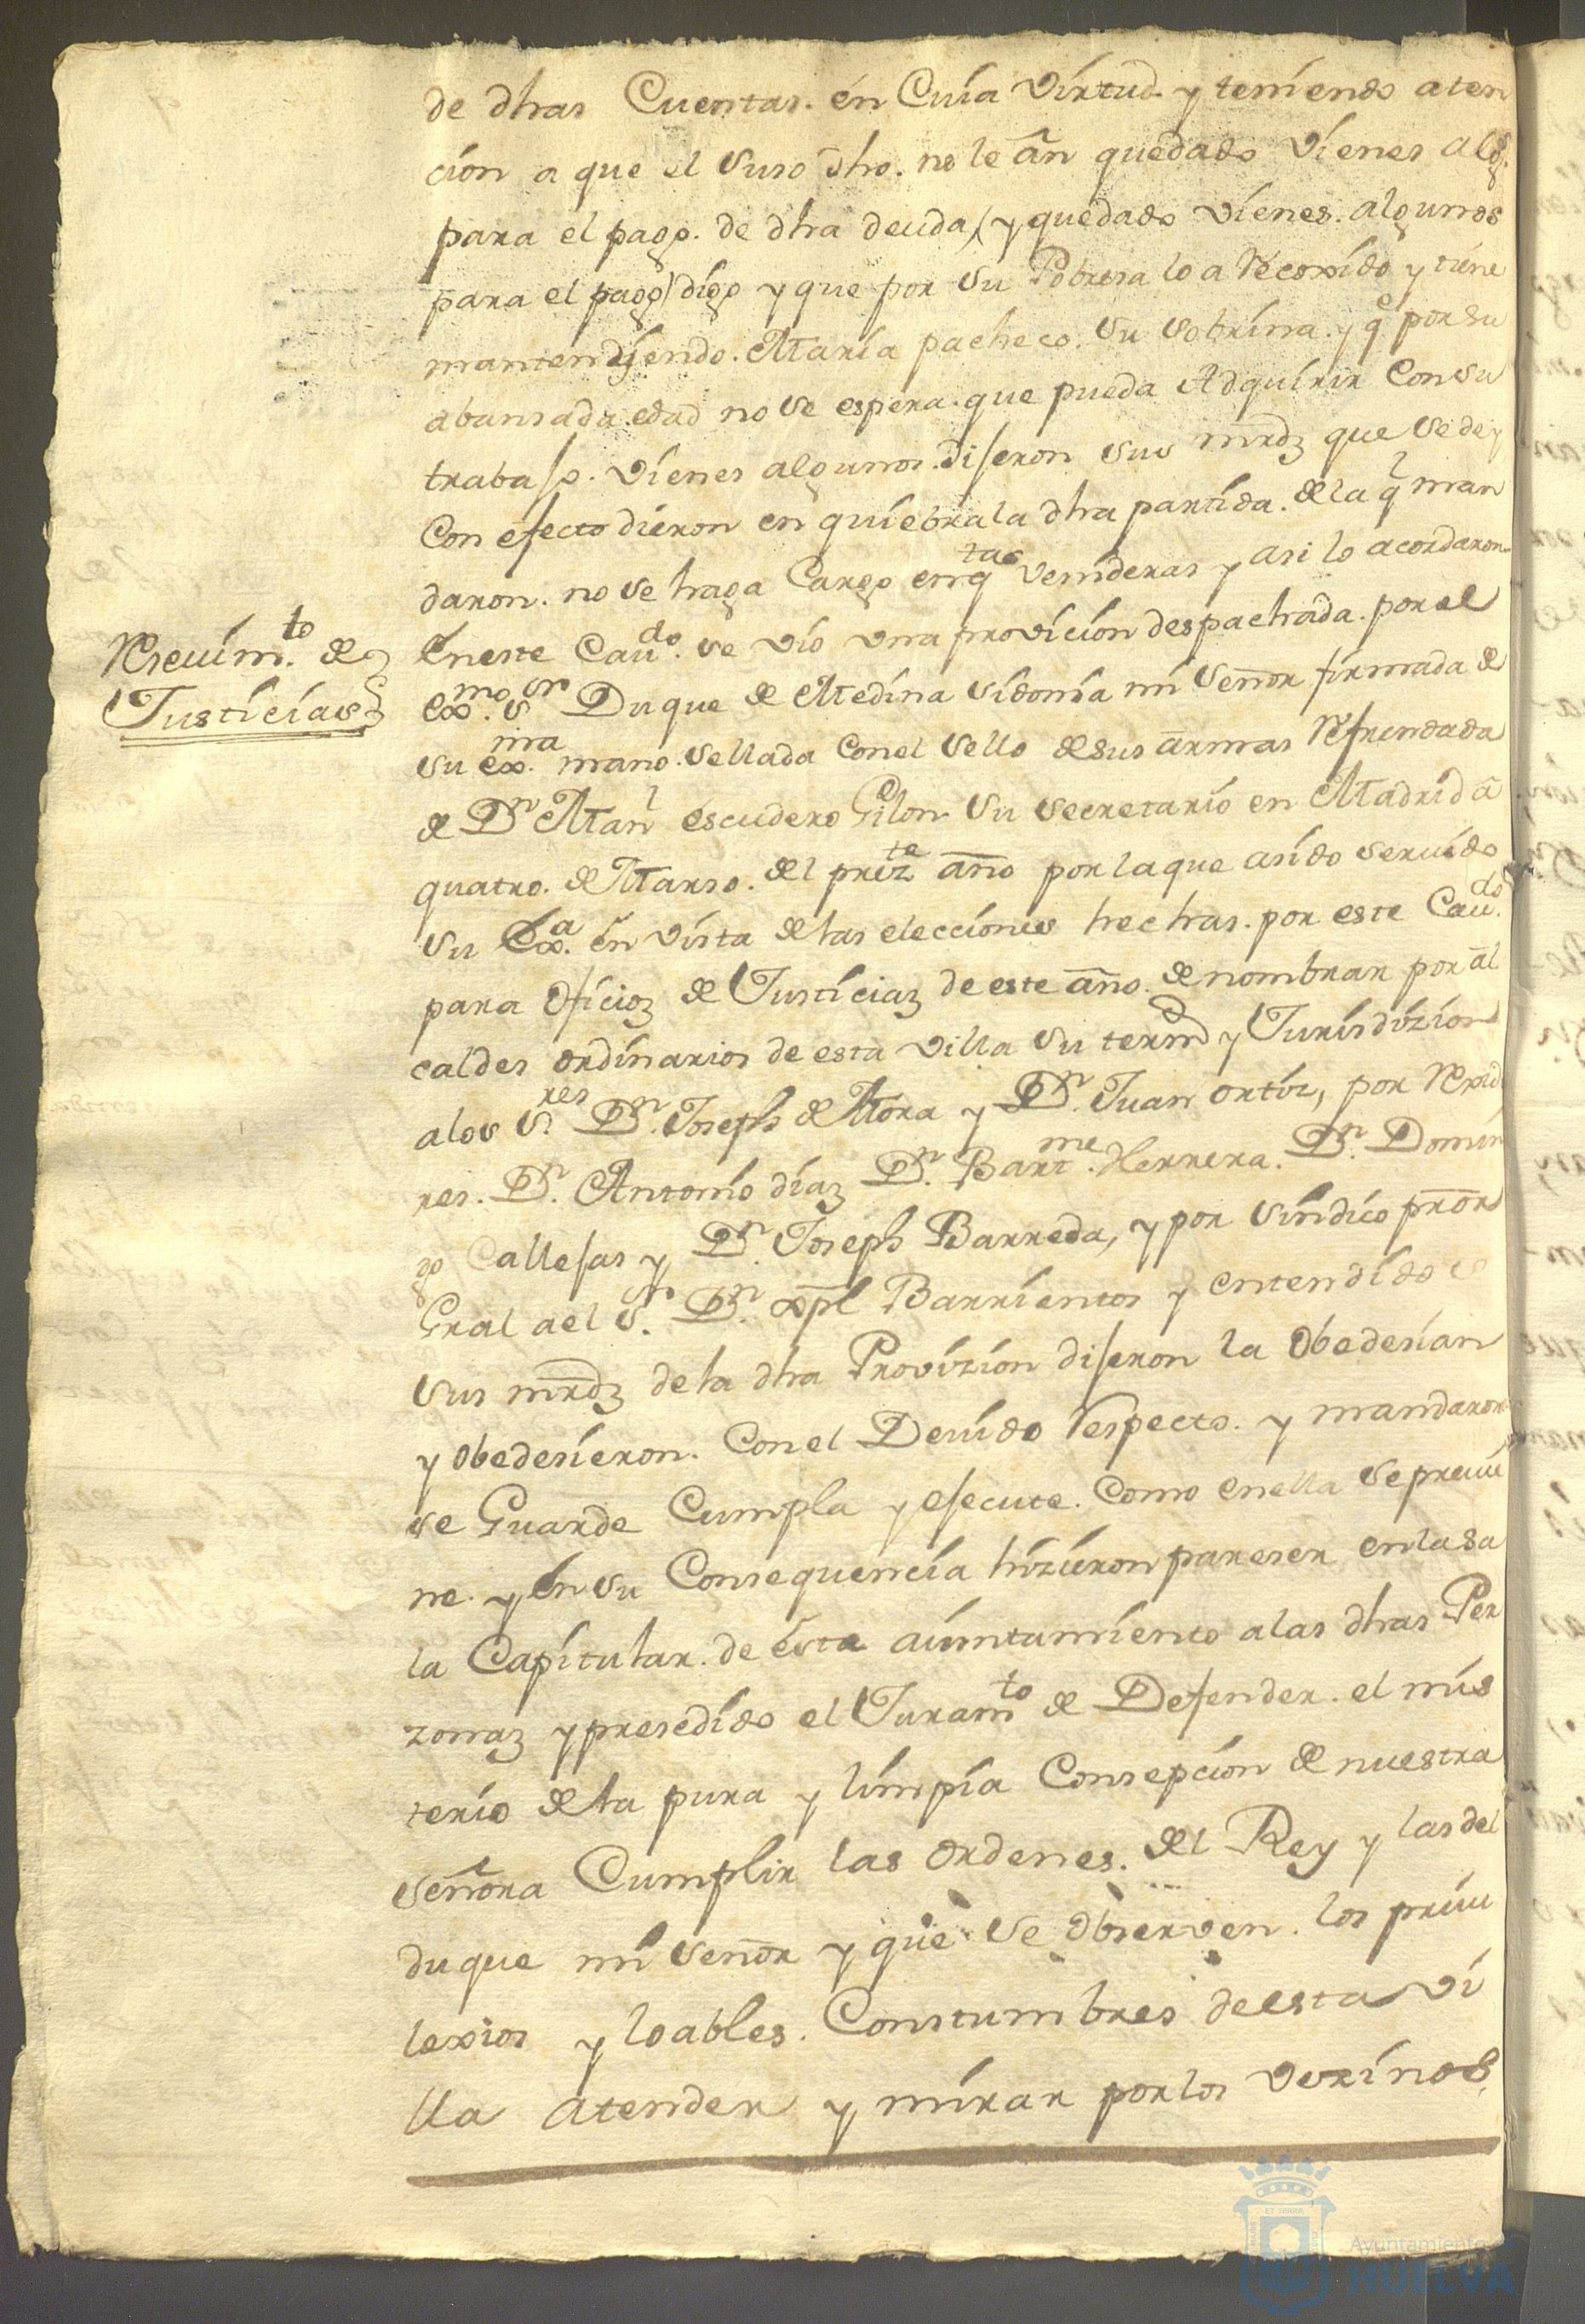 de dhas Cuentas. en Cuia virtud y teniendo aten
cion a que el suso dho. no le an quedado vienes algs.
para el pago. de dha deuda, (y quedado vienes. algunos
para el pago) digo y que por su Pobresa lo a Recoxido y tiene
mantendiendo. Maria pacheco. su sobrina. y qe por su
abansada edad no se espera. que pueda Adquirir Con su
trabajo. vienes algunos. dijeron sus mrdz que se de y
Con efecto dieron en quiebra la dha partida. de la ql man
daron. no se haga Cargo en qtas venideras y asi lo acordaron
Reciuimto. de
Justicias
En este Caudo. se vio una provicion despachada. por el
exmo. sr Duque de Medina sidonia mi señor firmada de
su exma. mano. sellada Con el sello de sus armas Refrendada
de Dn Manl escudero Gilon su secretario en Madrid a
quatro. de Marso. del prezte año por la que a sido seruido
su Exa. en vista de las elecciones hechas. por este Caudo.
para oficioz de Justiciaz de este año. de nombrar por al
caldes ordinarios de esta villa su termo y Jurisdizion
a los Sres. Dn. Joseph de Mora y Dn. Juan ortiz, por Rexid
res. Dn. Antonio diaz Dn. Bartme. Herrera. Dn. Domin
go Callejas y Dn. Joseph Barreda, y por sindico pror
Gral a el Sr. Dn. xpl Barrientos y entendidos
sus mrdz de la dha Provizion dijeron la obedesian
y obedesieron. Con el Deuido Respecto. y mandaron
se Guarde Cumpla y ejecute. Como en ella se preuie
ne. y en su Consequencia hizieron pareser en la sa
la Capitular. de este aiuntamiento a las dhas Per
zonaz y presedido el Juramto de Defender. el mis
terio de la pura y limpia Consepcion de nuestra
señora Cumplir las ordenes. del Rey y las del
duque mi señor y que se observen. los priui
lexios y loables. Constumbres de esta vi
lla atender y mirar por los vezinos
Ayuntamiento
HUELVA